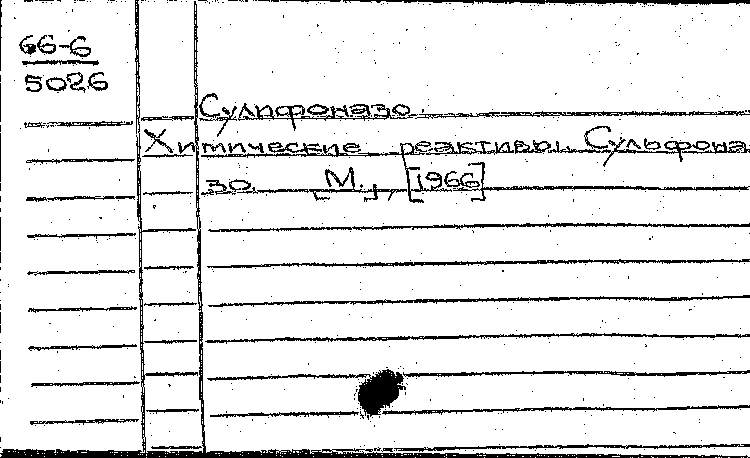 66-6
5026
Сулифоназо.
Химические реактивы. Сульфона
зо. [М.], [1966]